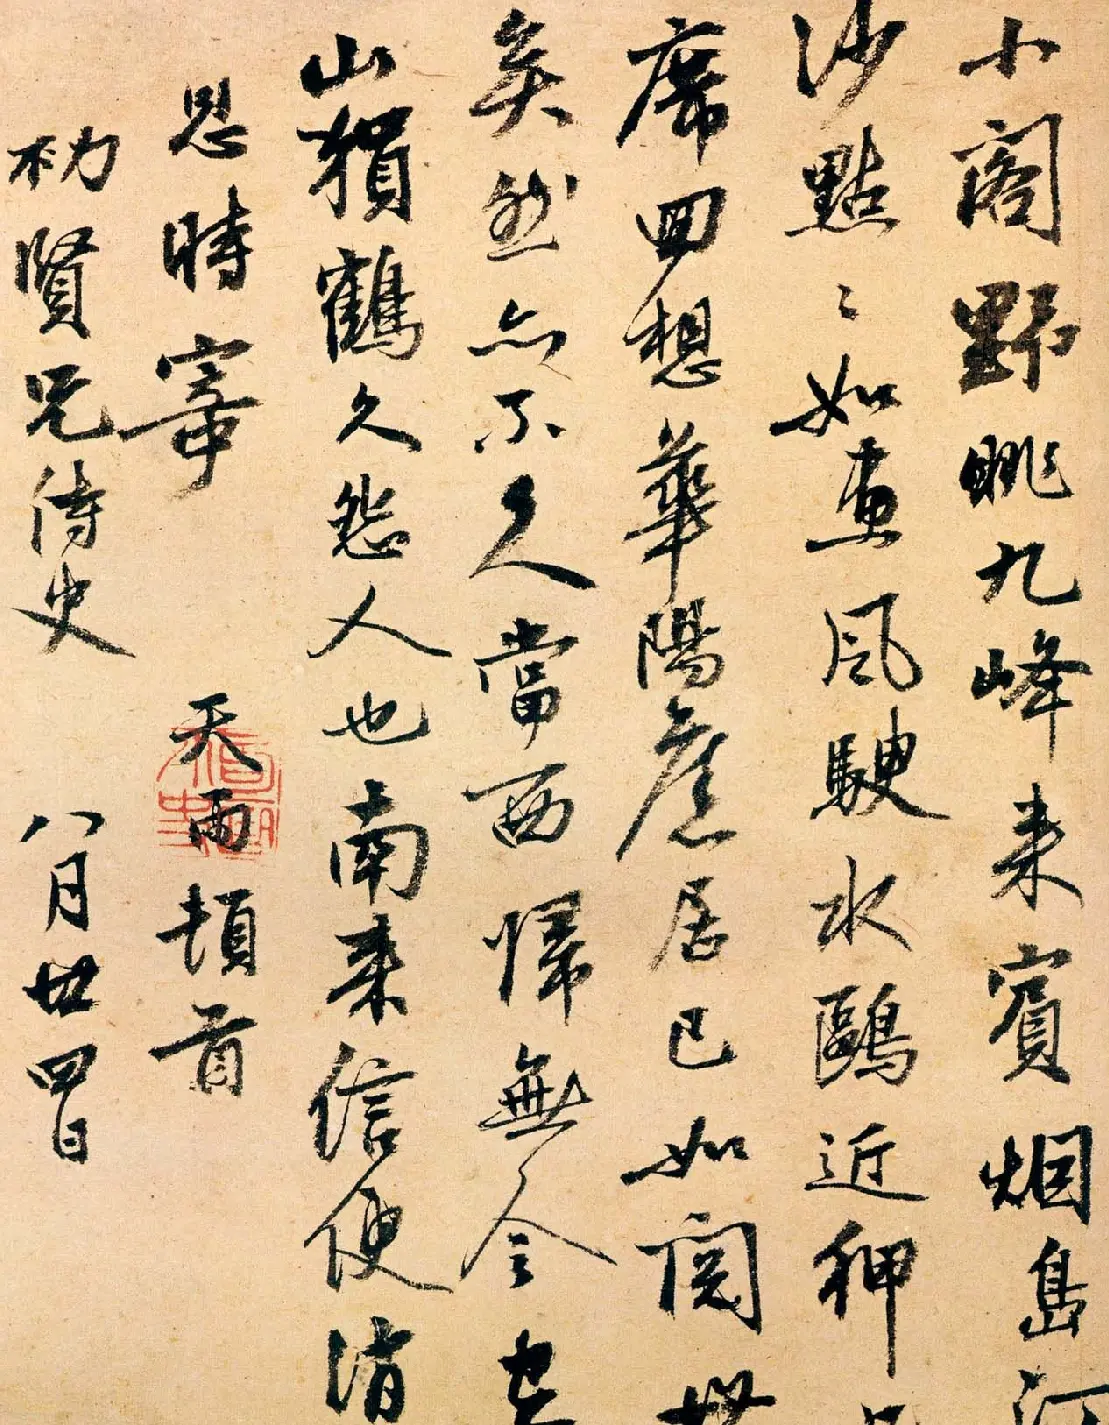 小閣野眺九峰来賓烟島汀
沙點〻如畫風駛水鷗近狎
席回想華陽舊居已如閱世
矣然亦不久當西歸無令
山猿鶴久怨人也南来信便消
息時寄
天雨頓首
初賢兄侍史
八月廿四日